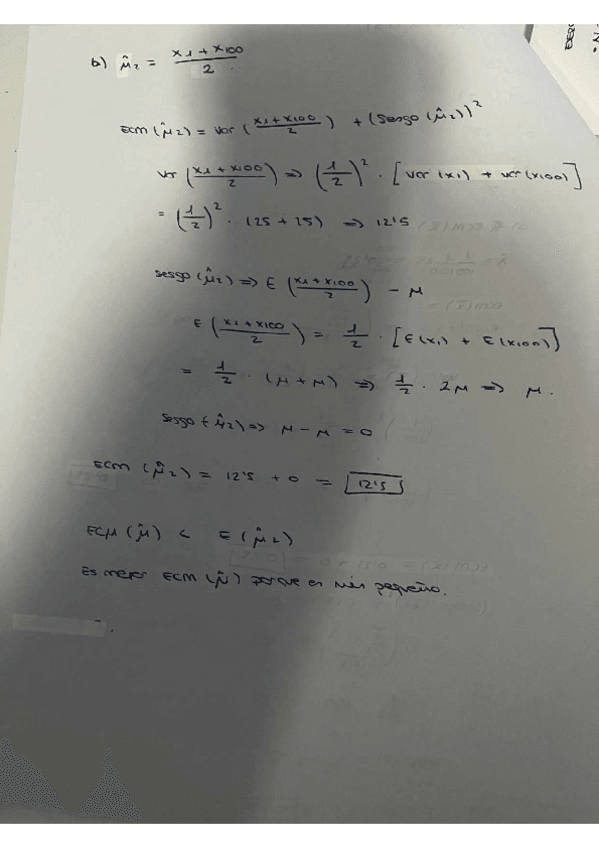 b) μ̂2 = (x1 + x100)/2
ECM (μ̂2) = Var ((x1 + x100)/2) + (sesgo (μ̂2))²
Var ((x1 + x100)/2) => (1/2)² · [Var (x1) + Var (x100)]
= (1/2)² · (25 + 25) => 12'5
sesgo (μ̂2) => E ((x1 + x100)/2) - μ
E ((x1 + x100)/2) = 1/2 · [E(x1) + E(x100)]
= 1/2 · (μ + μ) => 1/2 · 2μ => μ.
sesgo (μ̂2) => μ - μ = 0
ECM (μ̂2) = 12'5 + 0 = 12'5
ECM (μ̂) < E (μ̂2)
Es mejor ECM (μ̂) porque es más pequeño.